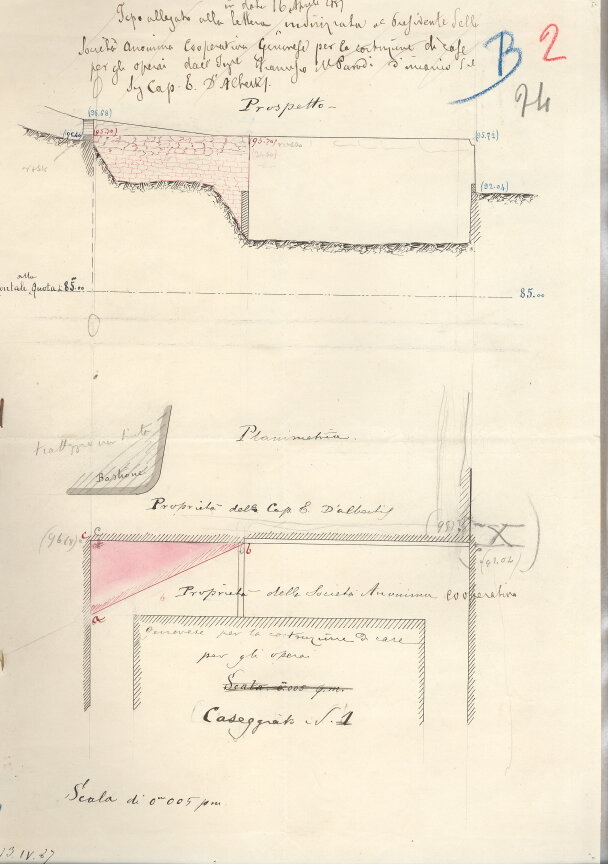 in data 16 Aprile 1887
Tipo allegato alla lettera indirizzata al Presidente della
Società Anonima Cooperativa Genovese per la costruzione di case
per gli operai dall' Ing. Francesco M. Parodi d'incarico del
Sig Cap. E. D'Albertis.
B 2
74
Prospetto
(96.68)
(95.70)
(95.70)
(95.72)
(92.04)
alla
Quota 85.00
85.00
Planimetria.
Bastione
Proprietà del Cap. E. D'albertis
(95)
(96
c
b
(92.02)
a
Proprietà della Società Anonima cooperativa
Genovese per la costruzione di case
per gli operai
Scala 0.005 p.m.
Caseggiato N. 1
Scala di 0m 005 pm.
13 IV. 87